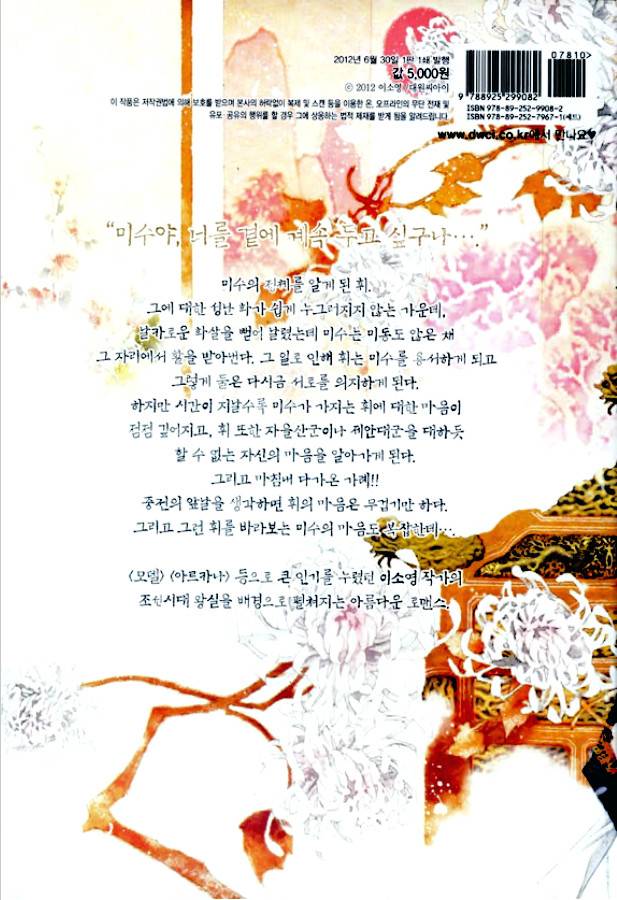 2012년 6월 30일 1판 1쇄 발행
값 5,000원
ⓒ 2012 이소영 / 대원씨아이
이 작품은 저작권법에 의해 보호를 받으며 본사의 허락없이 복제 및 스캔 등을 이용한 온, 오프라인의 무단 전재 및
유포·공유의 행위를 할 경우 그에 상응하는 법적 제재를 받게 됨을 알려드립니다.
07810>
9 788925 299082
ISBN 978-89-252-9908-2
ISBN 978-89-252-7967-1(세트)
www.dwci.co.kr에서 만나요♥
“미수야, 너를 곁에 계속 두고 싶구나….”
미수의 정체를 알게 된 휘.
그에 대한 성난 화가 쉽게 누그러지지 않는 가운데,
날카로운 화살을 뻗어 날렸는데 미수는 미동도 않은 채
그 자리에서 활을 받아낸다. 그 일로 인해 휘는 미수를 용서하게 되고
그렇게 둘은 다시금 서로를 의지하게 된다.
하지만 시간이 지날수록 미수가 가지는 휘에 대한 마음이
점점 깊어지고, 휘 또한 자을산군이나 제안대군을 대하듯
할 수 없는 자신의 마음을 알아가게 된다.
그리고 마침내 다가온 가례!!
중전의 앞날을 생각하면 휘의 마음은 무겁기만 하다.
그리고 그런 휘를 바라보는 미수의 마음도 복잡한데….
〈모델〉 〈아르카나〉 등으로 큰 인기를 누렸던 이소영 작가의
조선시대 왕실을 배경으로 펼쳐지는 아름다운 로맨스!